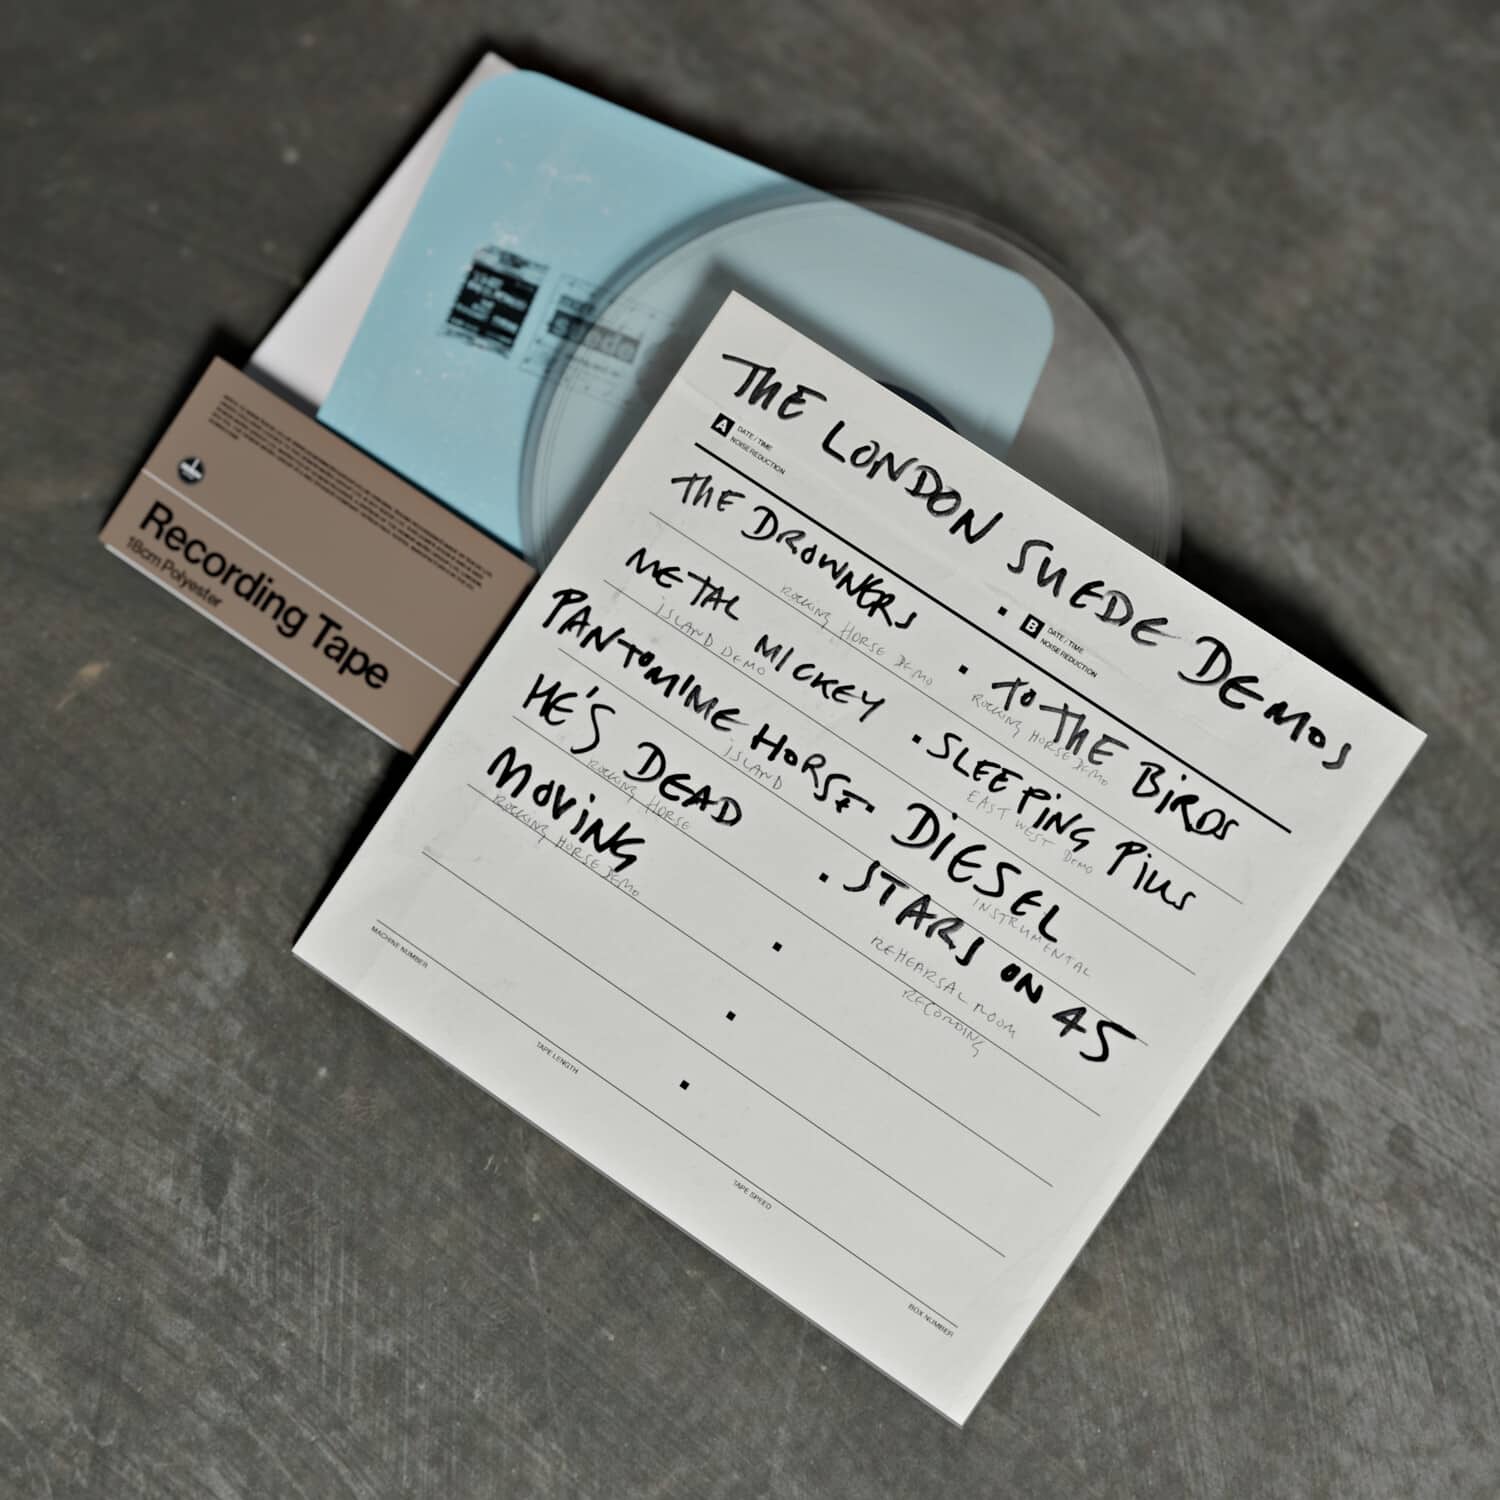 THE LONDON SUEDE DEMOS
A DATE / TIME
NOISE REDUCTION
THE DROWNERS
ROCKING HORSE DEMO
METAL MICKEY
ISLAND DEMO
PANTOMIME HORSE
ISLAND
HE'S DEAD
ROCKING HORSE
MOVING
ROCKING HORSE DEMO
B DATE / TIME
NOISE REDUCTION
TO THE BIRDS
ROCKING HORSE DEMO
SLEEPING PILLS
EAST WEST DEMO
DIESEL
INSTRUMENTAL
STARS ON 45
REHEARSAL ROOM
RECORDING
MACHINE NUMBER
TAPE LENGTH
TAPE SPEED
BOX NUMBER
Recording Tape
18cm Polyester